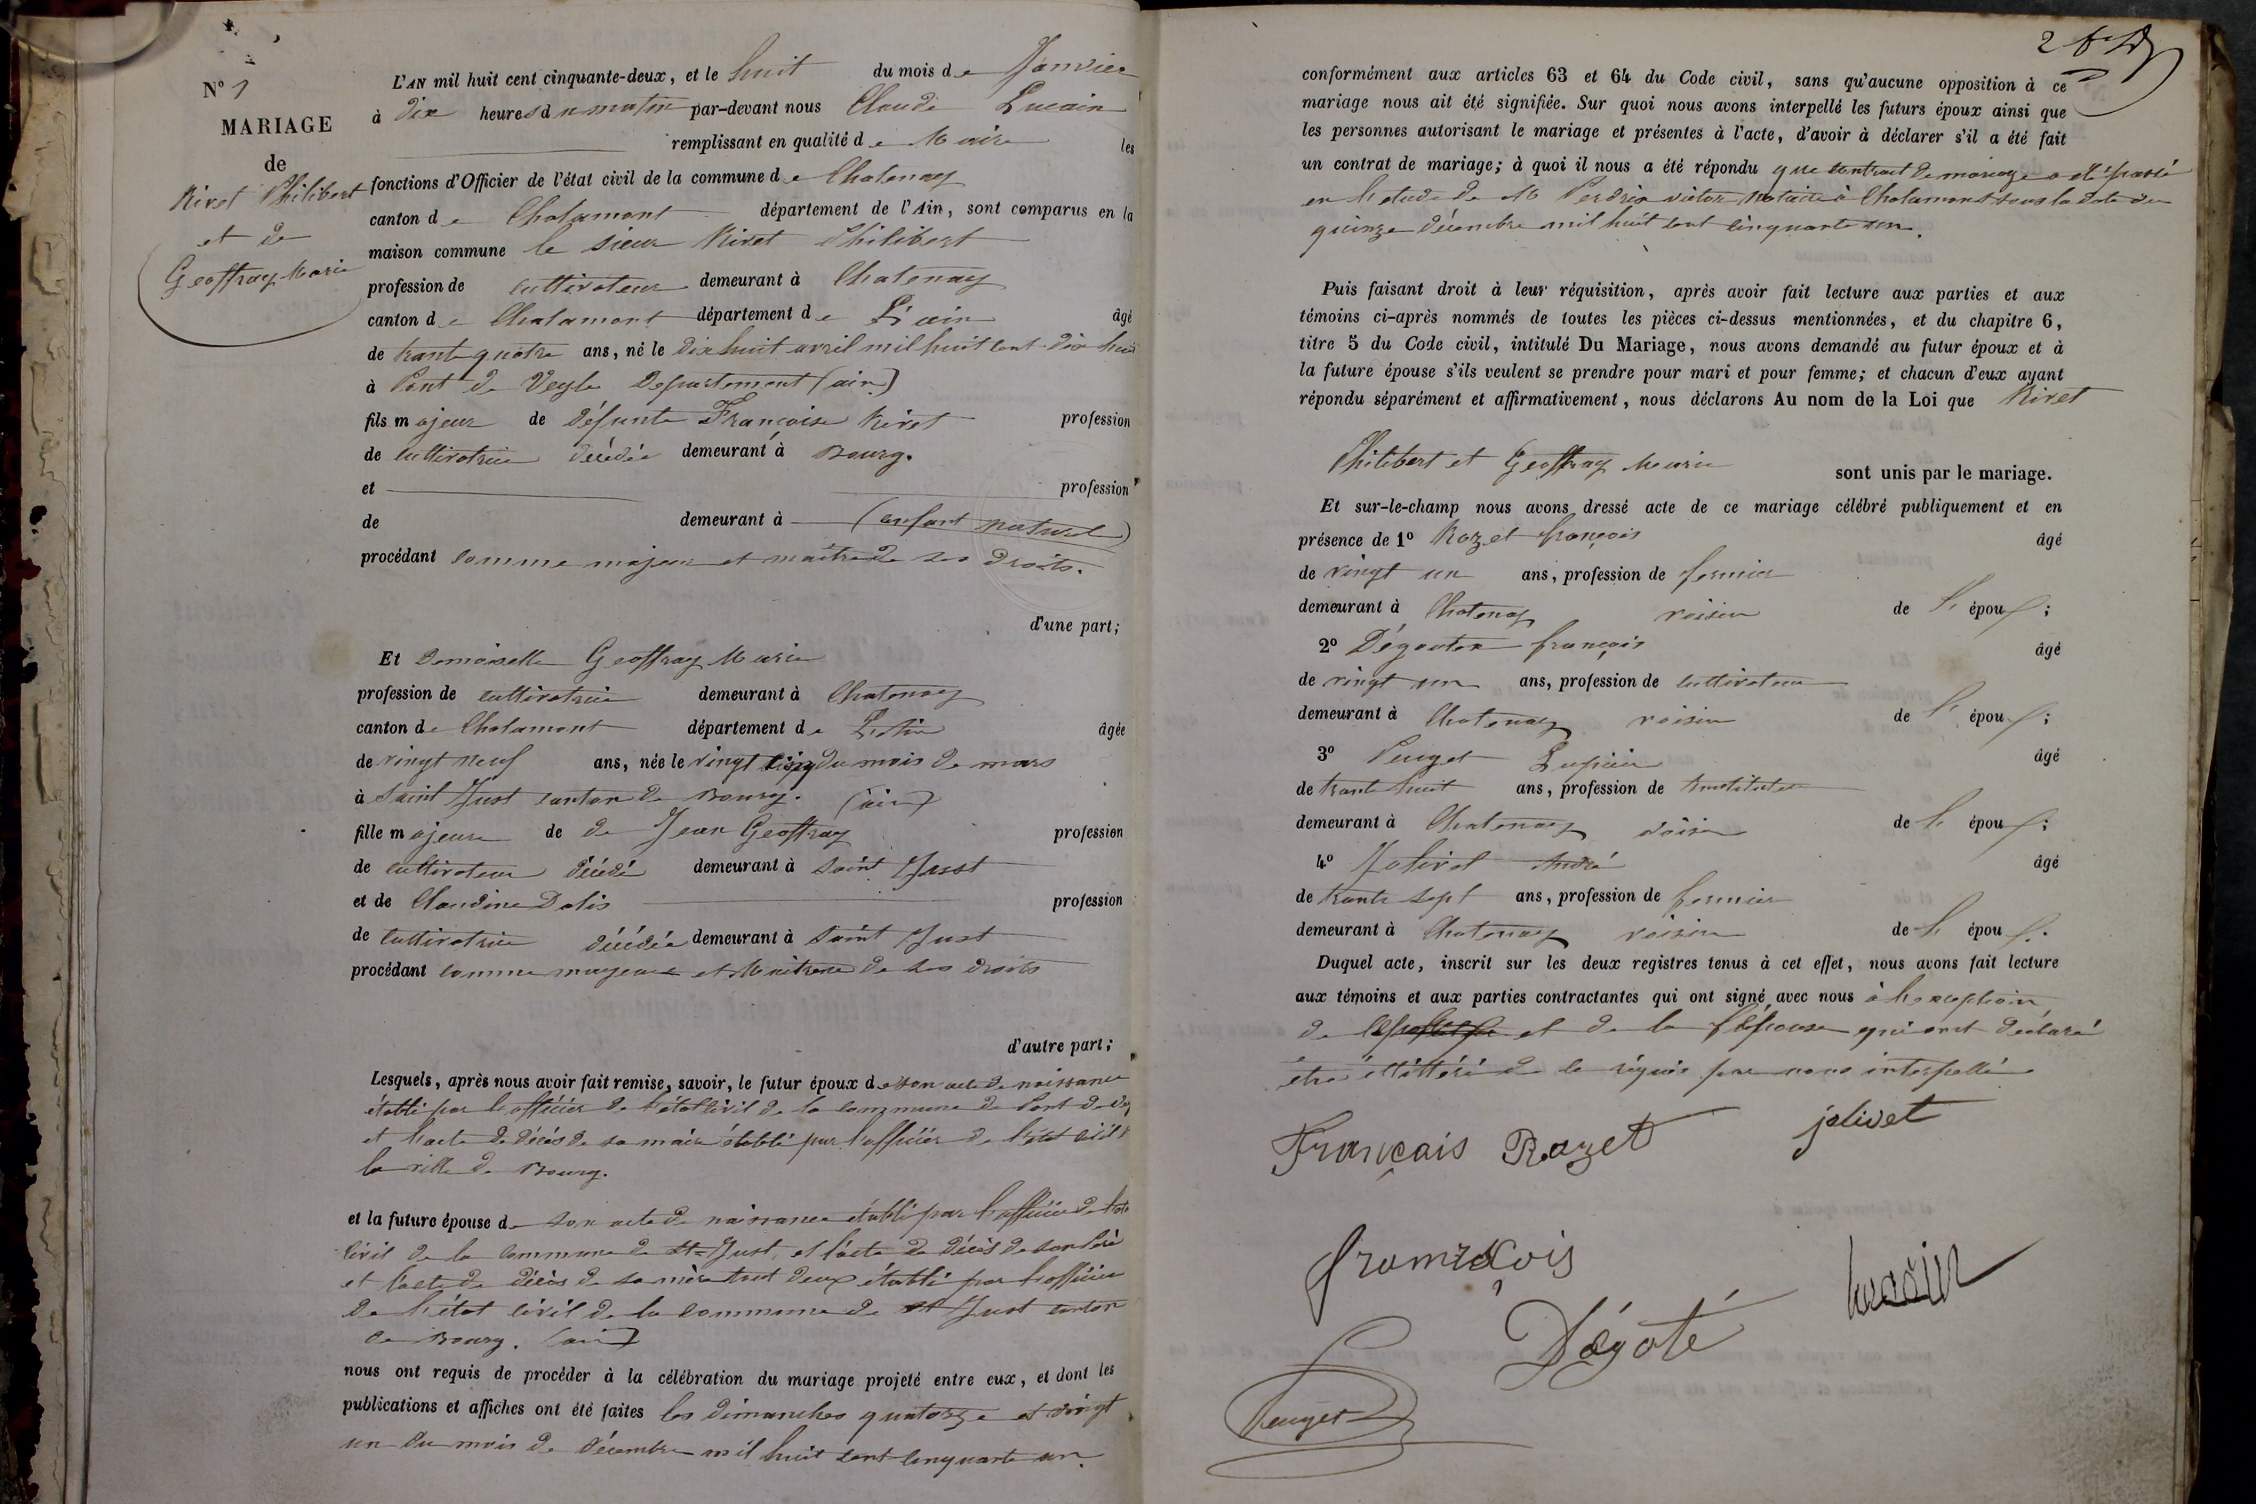 N° 1
MARIAGE
de
Rivet Philibert
et de
Geoffray Marie
L'AN mil huit cent cinquante-deux, et le huit du mois de Janvier
à dix heures du matin par-devant nous Claude Lucain
remplissant en qualité de Maire les
fonctions d'Officier de l'état civil de la commune de Chatenay
canton de Chalamont département de l'Ain, sont comparus en la
maison commune le sieur Rivet Philibert
profession de cultivateur demeurant à Chatenay
canton de Chalamont département de L'ain âgé
de trante quatre ans, né le dix huit avril mil huit cent dix huit
à Pont de Veyle Departement (ain)
fils majeur de défunte Françoise Rivet profession
de cultivatrice décédée demeurant à Bourg.
et profession
de demeurant à (enfant naturel)
procédant comme majeur et maitre de ses droits.
d'une part;
Et demoiselle Geoffray Marie
profession de cultivatrice demeurant à Chatenay
canton de Chalamont département de L'Ain âgée
de vingt neuf ans, née le vingt cinq du mois de mars
à Saint Just canton de Bourg. (ain)
fille majeure de de Jean Geoffray profession
de cultivateur décédé demeurant à Saint Just
et de Claudine Dalis profession
de cultivatrice décédée demeurant à Saint Just
procédant comme majeure et Maitresse de ses droits
d'autre part;
Lesquels, après nous avoir fait remise, savoir, le futur époux de son acte de naissance
établi par l'officier de l'état civil de la commune de Pont de Vey
et l'acte de décès de sa mère établi par l'officier de l'état civil
la ville de Bourg.
et la future épouse de son acte de naissance établi par l'officier de l'etat
civil de la commune de St-Just, et l'acte de décès de son Père
et l'acte de décès de sa mère tout deux établi par l'officier
de l'état civil de la commune de St Just canton
de Bourg. (ain)
nous ont requis de procéder à la célébration du mariage projeté entre eux, et dont les
publications et affiches ont été faites les dimanches quatorze et vingt
un du mois de décembre mil huit cent cinquante un.
2
conformément aux articles 63 et 64 du Code civil, sans qu'aucune opposition à ce
mariage nous ait été signifiée. Sur quoi nous avons interpellé les futurs époux ainsi que
les personnes autorisant le mariage et présentes à l'acte, d'avoir à déclarer s'il a été fait
un contrat de mariage; à quoi il nous a été répondu que contrat de mariage a été passé
en l'etude de Me Perdrix victor Notaire à Chalamont sous la date du
quinze décembre mil huit cent cinquante un.
Puis faisant droit à leur réquisition, après avoir fait lecture aux parties et aux
témoins ci-après nommés de toutes les pièces ci-dessus mentionnées, et du chapitre 6,
titre 5 du Code civil, intitulé Du Mariage, nous avons demandé au futur époux et à
la future épouse s'ils veulent se prendre pour mari et pour femme; et chacun d'eux ayant
répondu séparément et affirmativement, nous déclarons Au nom de la Loi que Rivet
Philibert et Geoffray Marie sont unis par le mariage.
Et sur-le-champ nous avons dressé acte de ce mariage célébré publiquement et en
présence de 1° Razet françois âgé
de vingt un ans, profession de fermier
demeurant à Chatenay voisin de l' époux;
2° Dégouton françois âgé
de vingt un ans, profession de cultivateur
demeurant à Chatenay voisin de l' époux;
3° Peuget Lupicin âgé
de trante huit ans, profession de Instituteur
demeurant à Chatenay voisin de l' époux;
4° Jolivet André âgé
de trante sept ans, profession de fermier
demeurant à Chatenay voisin de l' époux.
Duquel acte, inscrit sur les deux registres tenus à cet effet, nous avons fait lecture
aux témoins et aux parties contractantes qui ont signé avec nous à l'exception
de et de la l'Epouse qui ont déclaré
être illittéré de le réquis par nous interpellé
Français Razet jolivet
françois
Dégoté
lucain
Peuget